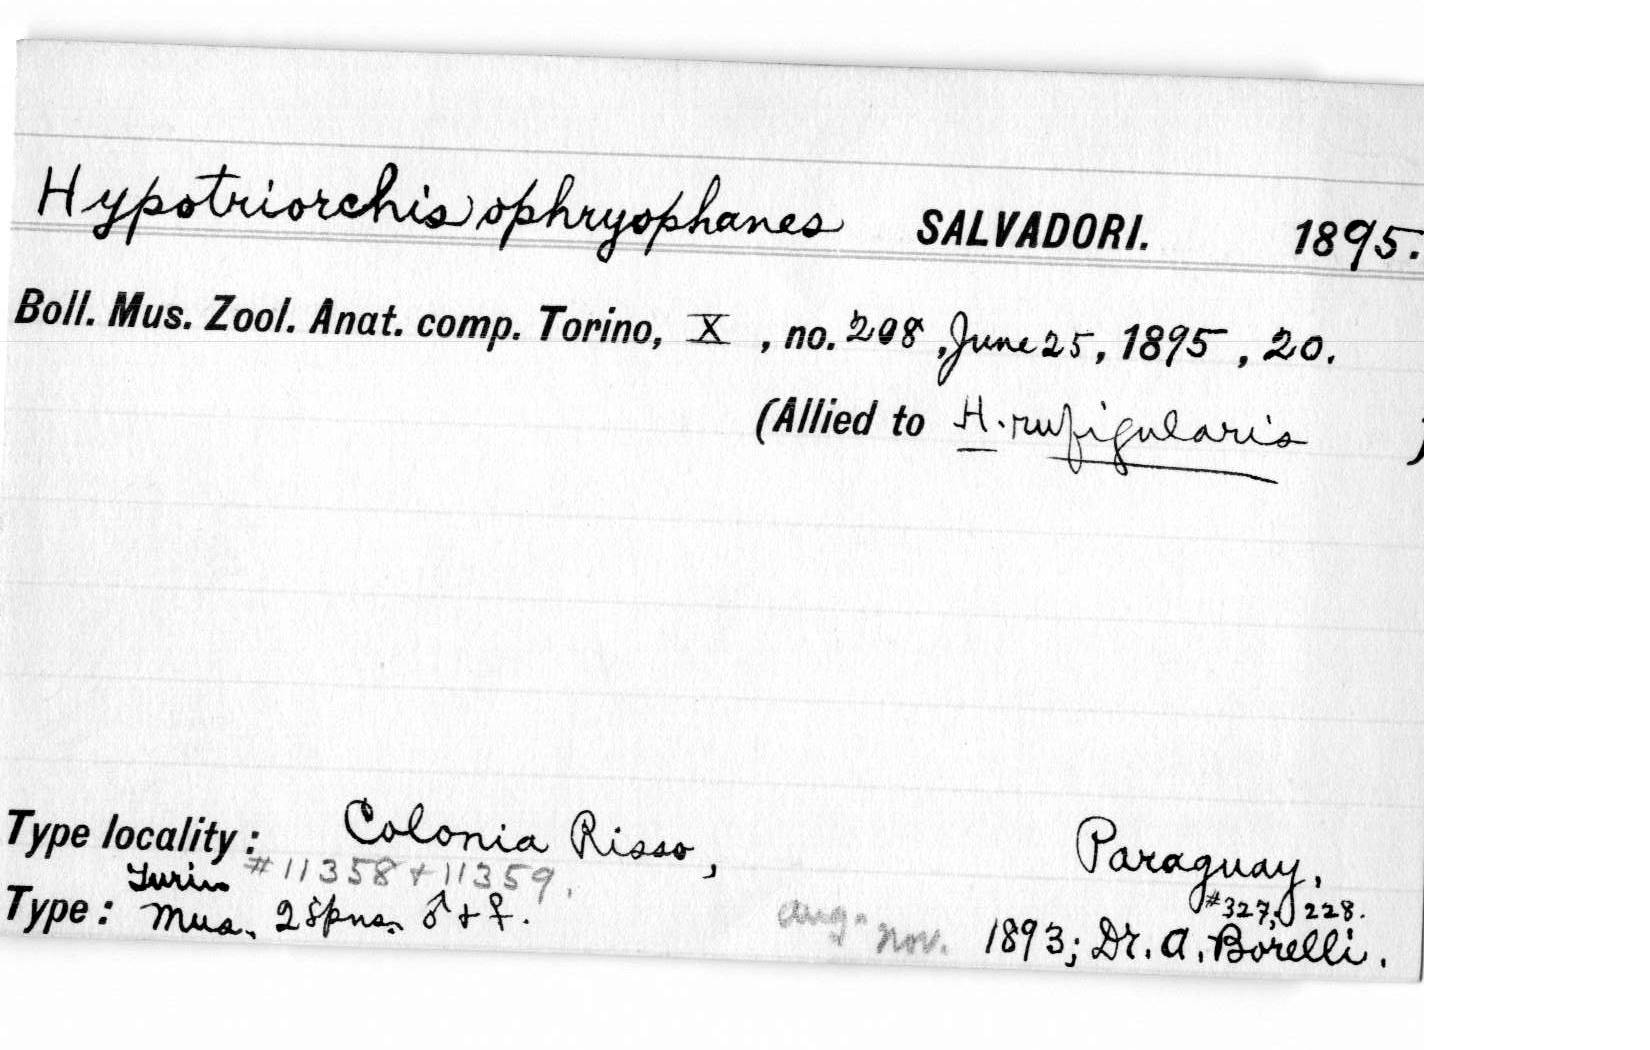 Hypotriorchis ophryophanes SALVADORI. 1895.
Boll. Mus. Zool. Anat. comp. Torino, X, no. 208, June 25, 1895, 20.
(Allied to H. rufigularis )
Type locality: Colonia Risso, Paraguay,
Turin #11358+11359. #327, 228.
Type: Mus. 2 spns. ♂ + ♀. Aug.-Nov. 1893; Dr. A. Borelli.